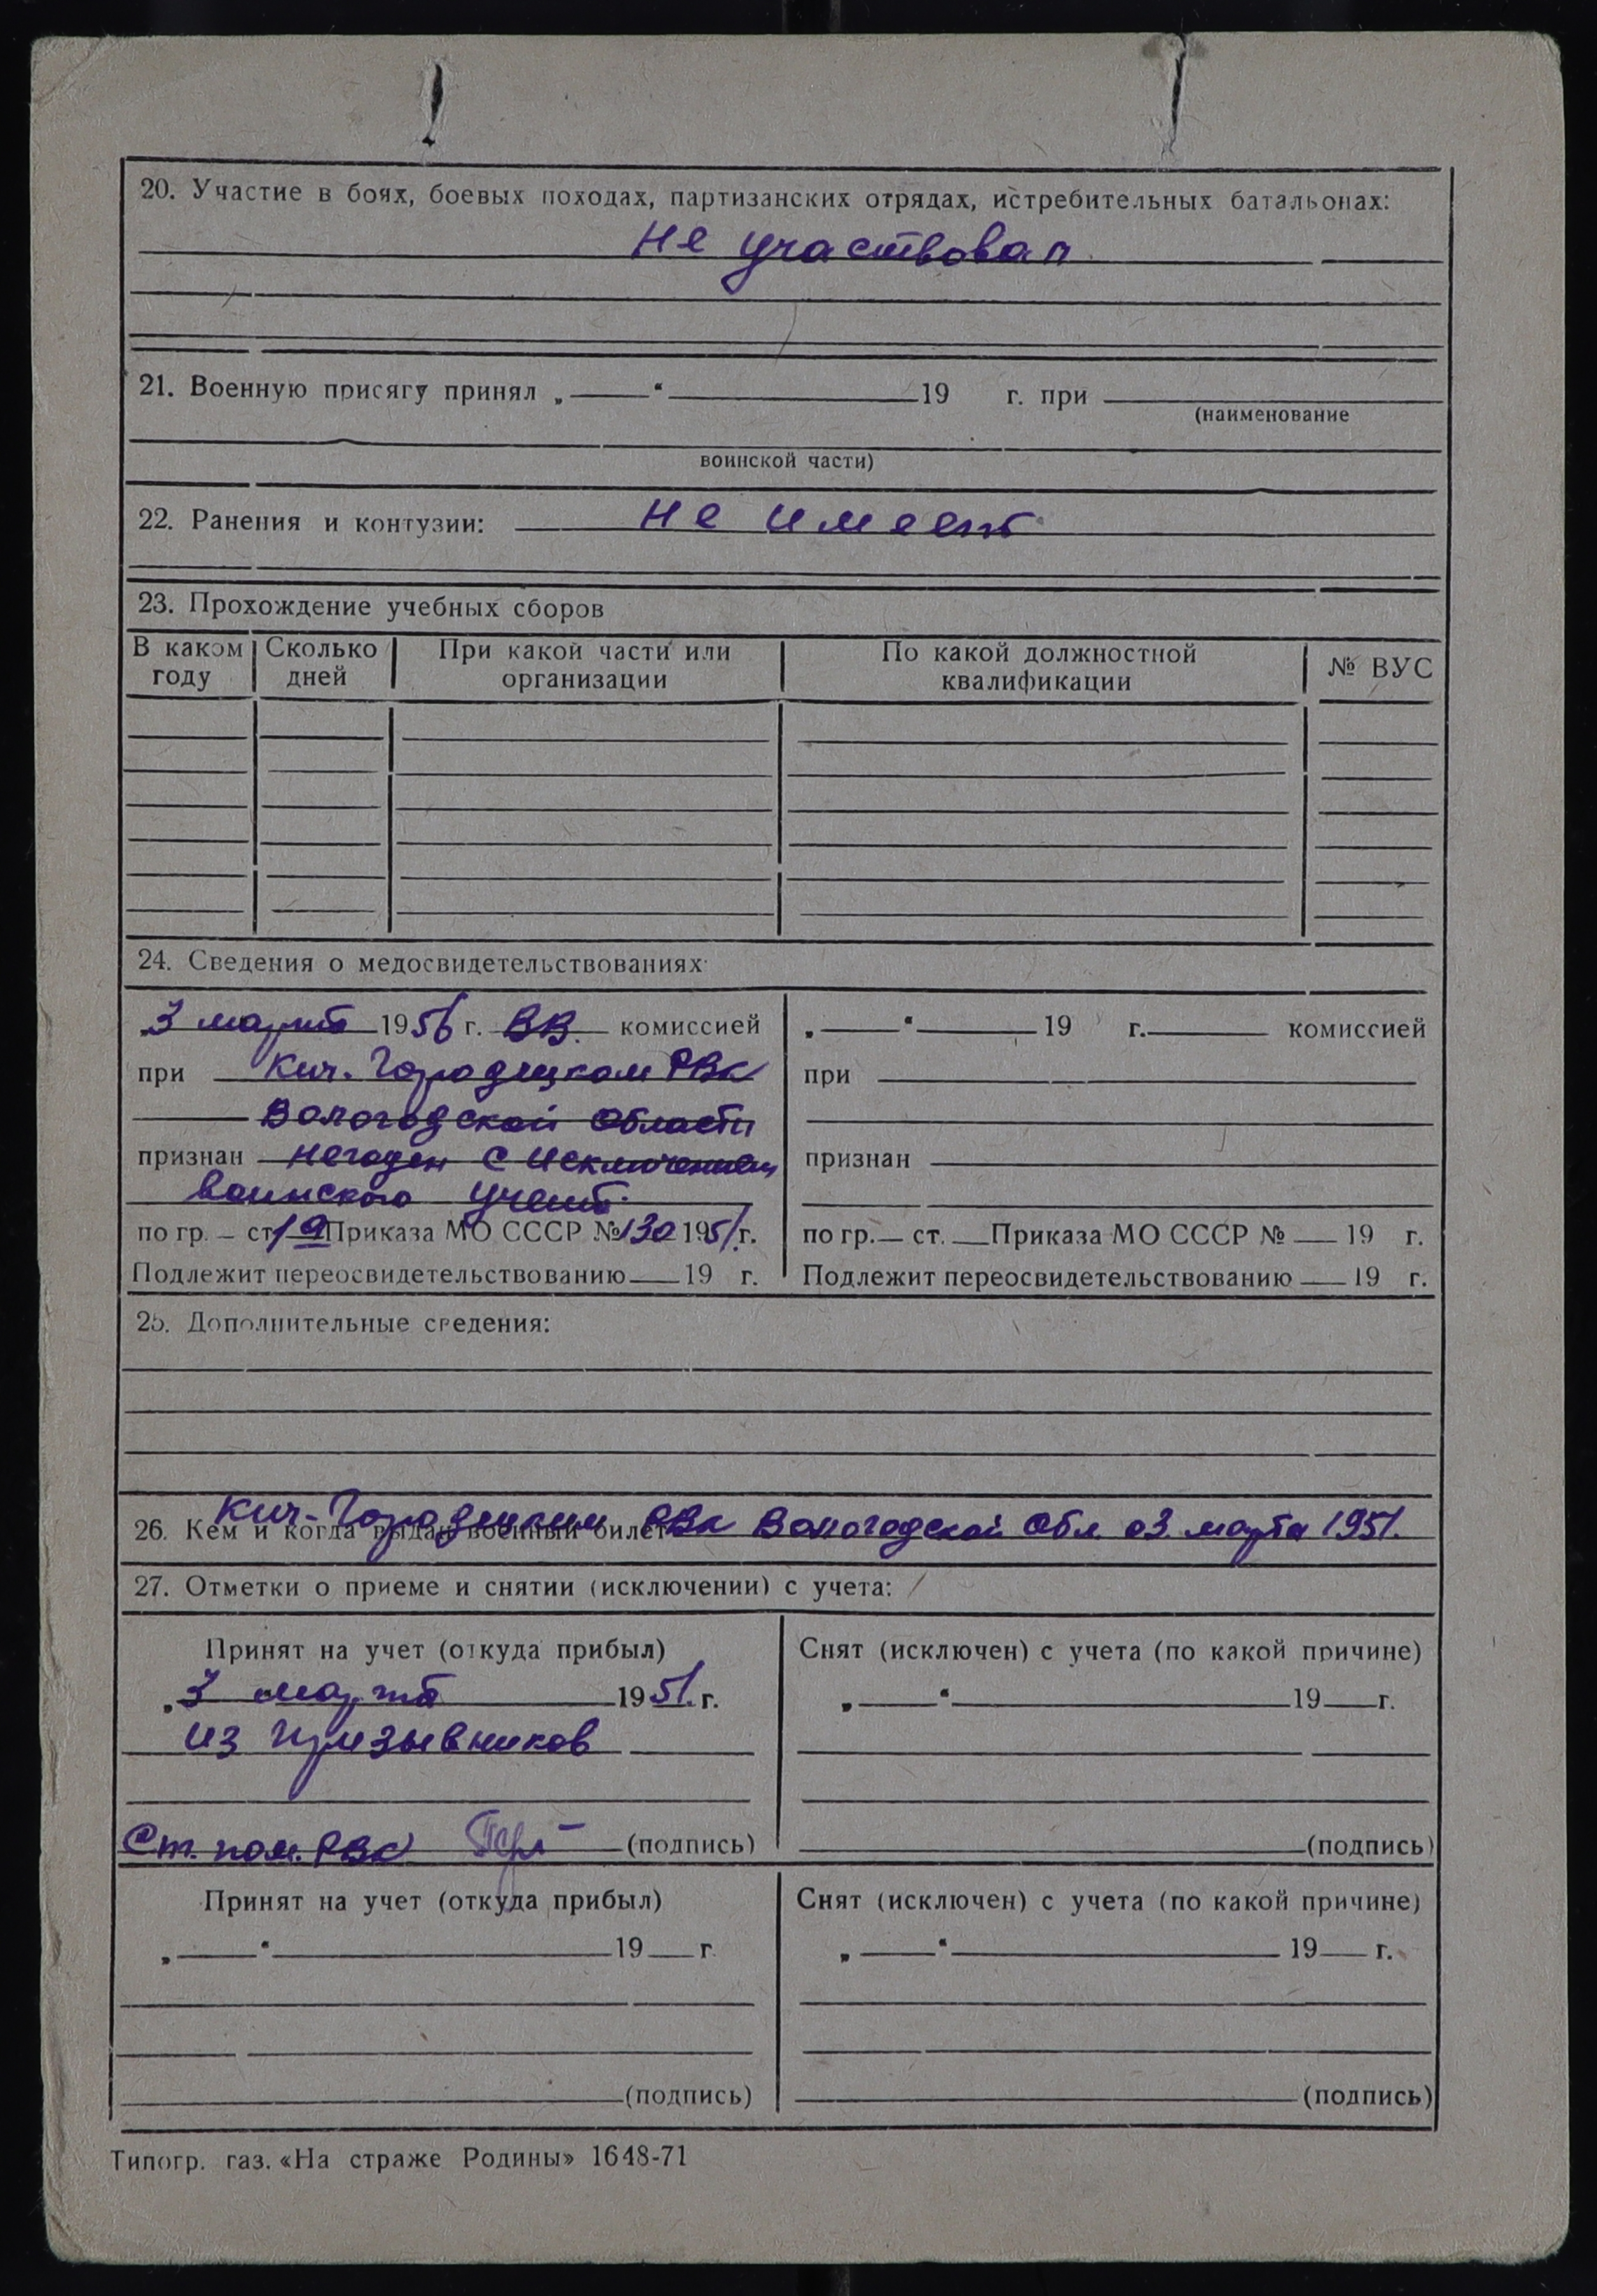 20. Участие в боях, боевых походах, партизанских отрядах, истребительных батальонах:
не участвовал
21. Военную присягу принял „ “ 19 г. при
(наименование
воинской части)
22. Ранения и контузии: не имеет
23. Прохождение учебных сборов
В каком году Сколько дней При какой части или организации По какой должностной квалификации № ВУС
24. Сведения о медосвидетельствованиях
„3 марта 1956 г. ВВ. комиссией
при Кич. Городецком РВК
Вологодской области
признан негоден с исключением
воинского учета.
по гр. – ст. 19 Приказа МО СССР № 130 1951 г.
Подлежит переосвидетельствованию 19 г.
„ “ 19 г. комиссией
при
признан
по гр. — ст. Приказа МО СССР № 19 г.
Подлежит переосвидетельствованию 19 г.
25. Дополнительные сведения:
26. Кем и когда выдан военный билет Кич-Городецким РВК Вологодской обл. 03 марта 1951.
27. Отметки о приеме и снятии (исключении) с учета:
Принят на учет (откуда прибыл)
„3 марта 1951. г.
из призывников
Ст. пом. РВК (подпись)
Снят (исключен) с учета (по какой причине)
„ “ 19 г.
(подпись)
Принят на учет (откуда прибыл)
„ “ 19 г.
(подпись)
Снят (исключен) с учета (по какой причине)
„ “ 19 г.
(подпись)
Типогр. газ. «На страже Родины» 1648-71